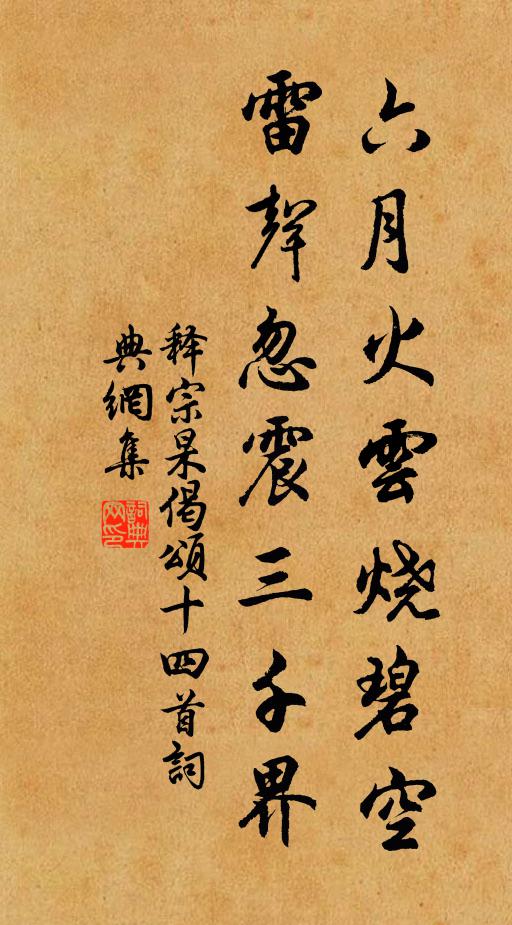 六月火雲烧碧空
雷聲忽震三千界
释宗杲偈頌十四首詞
典網集
詞典
网印